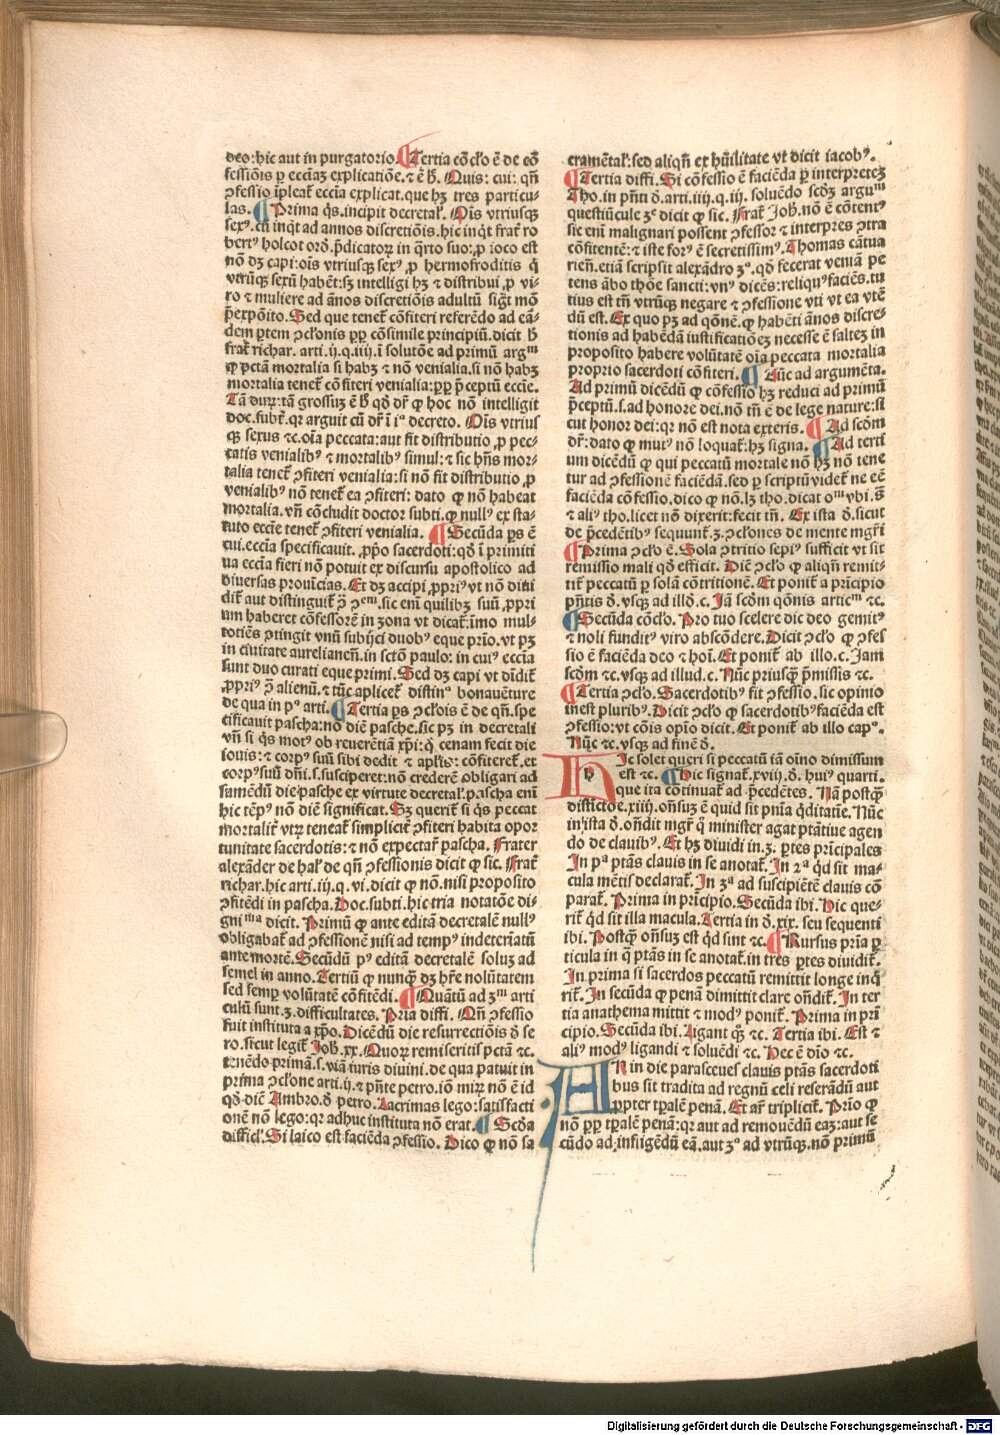 deo:hic aut in purgatorio. ¶ Tertia cōcło ē de cō
fessiōis ꝑ eccīaꝫ explicatiōe.⁊ ē ƀ. Quis: cui: qñ
ꝯfessio īpleat̃ eccīa explicat.que hꝫ tres particu⸗
las. ¶ Prima q̄s.incipit decretał. Oīs vtriusqꝫ
sexꝰ.cū inq̇t ad annos discretiōis.hic inq̇t frat̃ ro
bertꝰ holcot ord̄.p̄dicatoꝝ in q̇rto suo:ꝓ ioco est
nō dꝫ capi:oīs vtriusqꝫ sexꝰ,ꝓ hermofroditis q̇
vtrūqꝫ sexū habēt:sꝫ intelligi hꝫ ⁊ distribui,ꝓ vi⸗
ro ⁊ muliere ad ānos discretiōis adultū sigt̃ mō
p̄expōito. Sed que tenet̃ cōfiteri referēdo ad eā⸗
dem ꝑtem ꝯclōnis ꝓp̄ cōsimile principiū.dicit ƀ
frat̃ richar. arti.ij.q.iiij.ī solutōe ad primū argᵐ
ꝙ pctā mortalia si habꝫ ⁊ nō venialia.si nō habꝫ
mortalia tenet̃ cōfiteri venialia:ꝓp̄ p̄ceptū eccīe.
Tā duꝝ:tā grossuꝫ ē ƀ qd̄ dr̄ ꝙ hoc nō intelligit
doc.subt̃.qr arguit cū dr̄ ī iᵒ decreto. Oīs vtrius
qꝫ sexus ⁊c.oīa peccata:aut fit distributio,ꝓ pec⸗
catis venialibꝰ ⁊ mortalibꝰ simul:⁊ sic hn̄s mor⸗
talia tenet̃ ꝯfiteri venialia:si nō fit distributio,ꝓ
venialibꝰ nō tenet̃ ea ꝯfiteri: dato ꝙ nō habeat
mortalia. vn̄ cōcludit doctor subti.ꝙ nullꝰ ex sta⸗
tuto eccīe tenet̃ ꝯfiteri venialia. ¶ Secūda ps ē
cui.eccīa specificauit.,ꝓpō sacerdoti:qd̄ ī primiti
ua eccīa fieri nō potuit ex discursu apostolico ad
diuersas prouīcias. Et dꝫ accipi,ꝓpriꝰ vt nō diui
dit̃ aut distinguit̃ ꝓ̄ ꝯᵉᵐ.sic enī quilibꝫ suū,ꝓpri
um haberet cōfessorē in zona vt dicat̃:īmo mul⸗
totiēs ꝯtingit vnū subijci duobꝰ eque prīo.vt pꝫ
in ciuitate aurelianeñ.in sctō paulo: in cuiꝰ eccīa
sunt duo curati eque primi. Sed dꝫ capi vt dīdit̃
,ꝓpriꝰ ꝓ̄ alienū.⁊ tūc aplicet̃ distinᵒ bonauēture
de qua in pᵃ arti. ¶ Tertia ps ꝯclois ē de qñ.spe
cificauit pascha:nō diē pasche.sic pꝫ in decretali
vn̄ si q̇s morꝰ ob reuerētiā xp̄i:q̇ cenam fecit die
iouis:⁊ corpꝰ suū sibi dedit ⁊ apl̄is: cōfiteret̃.et
corpꝰsuū dn̄i.s.susciperet:nō crederē obligari ad
samedū die pasche ex virtute decretał.pascha enī
hic tēpꝰ nō diē significat. Sꝫ querit̃ si q̇s peccat
mortalit̃ vtꝝ teneat̃ simplicit̃ ꝯfiteri habita opor
tunitate sacerdotis:⁊ nō expectat̃ pascha. Frater
alexāder de hał de qñ ꝯfessionis dicit ꝙ sic. Frat̃
richar.hic arti.iij.q.vi.dicit ꝙ nō.nisi proposito
ꝯfitēdi in pascha. Doc.subti.hic tria notatōe di⸗
gniᵐᵃ dicit. Primū ꝙ ante editā decretalē nullꝰ
obligabat̃ ad ꝯfessionē nisi ad tempꝰ indeterīatū
ante mortē. Secūdū pꝰ editā decretalē soluꝫ ad
semel in anno. Tertiū ꝙ nunqꝫ dꝫ hr̄e nolūtatem
sed semp̄ volūtatē cōfitēdi. ¶ Quātū ad ʒᵐ arti
culū sunt.ʒ.difficultates. Pria diffi. Qñ ꝯfessio
fuit instituta a xp̄o. Dicēdū die resurrectiōis d̄ se
ro.sicut legit̃ Joh̄.xx. Quoꝝ remiseritis pctā ⁊c.
tenēdo primā.s.viā iuris diuini. de qua patuit in
prima ꝯclone arti.ij.⁊ pn̄te petro.iō miꝝ nō ē id
qd̄ diē Ambro.d̄ petro. Lacrimas lego:satisfacti
onē nō lego:qr adhuc instituta nō erat. ¶ Scd̄a
difficł. Si laico est faciēda ꝯfessio. Dico ꝙ nō sa
cramētał:sed aliqñ ex hūilitate vt dicit iacobꝰ.
¶ Tertia diffi. Si cōfessio ē faciēda ꝑ interpretēꝫ
Tho.in pn̄ti d̄.arti.iiij.q.iij. soluēdo scd̄ꝫ arguᵐ
questiūcule ʒᵉ dicit ꝙ sic. Frat̃ Joh̄.nō ē cōtentꝰ
sic enī malignari possent ꝯfessor ⁊ interpres ꝯtra
cōfitentē:⁊ iste forꝰ ē secretissimꝰ. Thomas cātua
rieñ.etiā scripsit alexādro ʒᵒ.qd̄ fecerat veniā pe
tens ābo thōe sancti:vnꝰ dicēs:reliquꝰ faciēs.tu
tius est tn̄ vtrūqꝫ negare ⁊ ꝯfessione vti vt ea vtē
dū est. Ex quo pꝫ ad qōnē.ꝙ habēti ānos discre⸗
tionis ad habēdā iustificatiōeꝫ necesse ē salteꝫ in
proposito habere volūtatē oīa peccata mortalia
proprio sacerdoti cōfiteri. ¶ Nūc ad argumēta.
Ad primū dicēdū ꝙ cōfessio hꝫ reduci ad primū
p̄ceptū.s.ad honorē dei.nō tn̄ ē de lege nature:si
cut honor dei:qr nō est nota exteris. ¶ Ad scd̄m
dr̄:dato ꝙ mutꝰ nō loquat̃:hꝫ signa. ¶ Ad terti
um dicēdū ꝙ qui peccatū mortale nō hꝫ nō tene
tur ad ꝯfessionē faciēdā.sed ꝑ scriptū videt̃ ne eē
faciēda cōfessio.dico ꝙ nō.lꝫ tho.dicat oᵐ vbi.s̄
⁊ aliꝰ tho.licet nō dixerit:fecit tn̄. Ex ista d̄.sicut
de p̄cedētibꝰ sequunt̃.ʒ.ꝯclones de mente mgr̄i
¶ Prima ꝯclo ē. Sola ꝯtritio sepiꝰ sufficit vt sit
remissio mali qd̄ efficit. Diē ꝯclo ꝙ aliqñ remit⸗
tit̃ peccatū ꝑ solā cōtritionē. Et ponit̃ a prīcipio
pn̄tis d̄.vsqꝫ ad illd̄.c. Jā scd̄m qōnis articᵐ ⁊c.
¶ Secūda cōclo. Pro tuo scelere dic deo gemitꝰ
⁊ noli fundit̃ viro abscōdere. Dicit ꝯclo ꝙ ꝯfes
sio ē faciēda deo ⁊ hoī. Et ponit̃ ab illo.c. Jam
scd̄m ⁊c.vsqꝫ ad illud.c. Nūc priusqꝫ p̄missis ⁊c.
¶ Tertia ꝯclo. Sacerdotibꝰ fit ꝯfessio.sic opinio
inest pluribꝰ. Dicit ꝯclo ꝙ sacerdotibꝰfaciēda est
ꝯfessio:vt cōis opīo dicit. Et ponit̃ ab illo capᵒ.
Nūc ⁊c.vsqꝫ ad finē d̄.
Hic solet queri si peccatū iā oīno dimissum
est ⁊c. ¶ Hic signat̃.xviij.d̄. huiꝰ quarti.
que ita cōtinuat̃ ad p̄cedētes. Nā postqꝫ
distictōe.xiiij.on̄suꝫ ē quid sit pn̄īa q̇ditatīe. Nūc
in ista d̄.on̄dit mgr̄ ꝙ minister agat ptātiue agen
do de clauibꝰ. Et hꝫ diuidi in.ʒ. ꝑtes prīcipales
In pᵃ ptās clauis in se anotat̃. In 2ᵃ q̇d sit ma⸗
cula mētis declarat̃. In ʒᵃ ad suscipiētē clauis cō
parat̃. Prima in prīcipio. Secūda ibi. Hic que⸗
rit̃ q̇d sit illa macula. Tertia in d̄.xix. seu sequenti
ibi. Postqꝫ on̄suꝫ est q̇d sint ⁊c. ¶ Rursus prīa ꝑ
ticula in q̄ ptās in se anotat̃.in tres ꝑtes diuidit̃.
In prima si sacerdos peccatū remittit longe inq̇
rit̃. In secūda ꝙ penā dimittit clare on̄dit̃. In ter
tia anathema mittit ⁊ modꝰ ponit̃. Prima in prī
cipio. Secūda ibi. Ligant qꝫ ⁊c. Tertia ibi. Est ⁊
aliꝰ modꝰ ligandi ⁊ soluēdi ⁊c. Hec ē dīo ⁊c.
AN in die parasceues clauis ptās sacerdoti
bus sit tradita ad regnū celi reserādū aut
,ꝓpter tꝑalē penā. Et ar̄ triplicit̃. Prīo ꝙ
nō ꝓp̄ tꝑalē penā:qr aut ad remouēdū eaꝫ:aut se
cūdo ad infligēdū eā.aut ʒᵒ ad vtrūqꝫ.nō primū
Digitalisierung gefördert durch die Deutsche Forschungsgemeinschaft - DFG